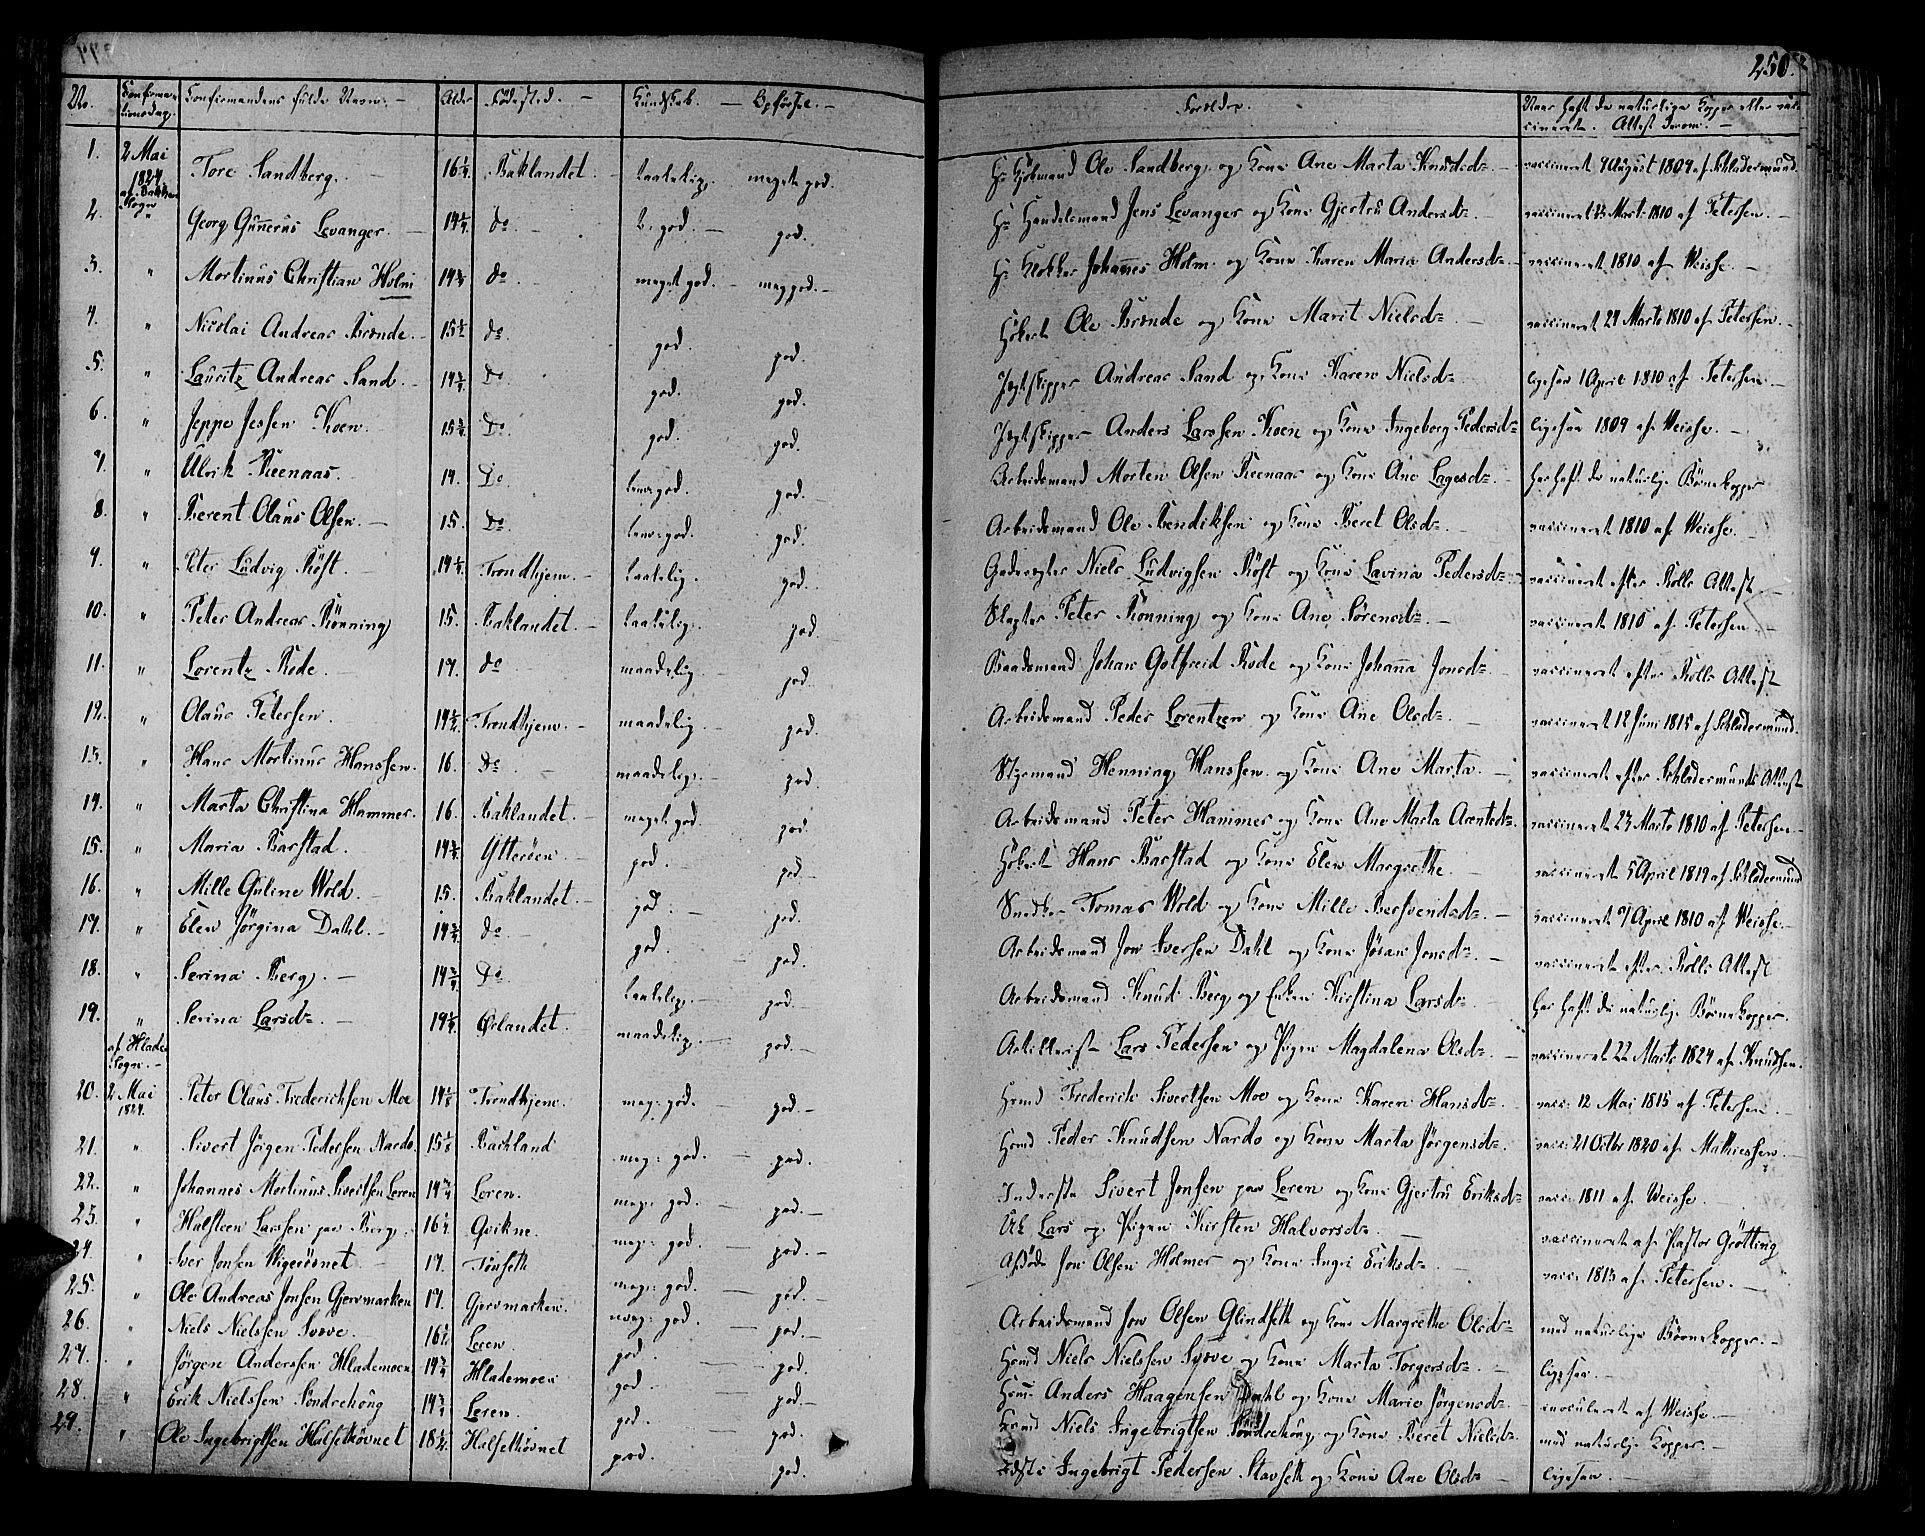 250.
No. Confirmationsdag. Confirmandens fulde Navn. Alder Fødested. Kundskab. Opførsel. Forældre. Naar haft de naturlige Kopper eller vaccineret. Attest derom.
1. 2 Mai 1824 af Bakke Sogn Tore Sandberg. 16¼ Baklandet. Taalelig. meget god. Hr Kjøbmand Ole Sandberg og Kone Ane Marta Knudsd. vaccineret 9 August 1809 af Schladermund.
2. " Georg Gunnerus Levanger. 14¼ do b. god. god. Hr Handelsmand Jens Levanger og Kone Gjertru Andersd. vaccineret Marts 1810 af Petersen.
3. " Mortinus Christian Holm 14¾ do meget god. meg god. Hr Klokker Johannes Holm og Kone Karen Maria Andersd. vaccineret 1810 af Weisse.
4. " Nicolai Andreas Brønde. 15½ do. god. god. Høker Ole Brønde og Kone Marit Nielsd. vaccineret 29 Marts 1810 af Petersen.
5. " Lauritz Andreas Sand. 14¾ Do god. god. Jegtskipper Andreas Sand og Kone Karen Nielsd. ligesaa 1 April 1810 af Petersen.
6. " Jeppe Jessen Koen. 15¾ Do. god. god. Jegtskipper Anders Larssen Koen og Kone Ingeborg Pedersd. ligesaa 1809 af Weisse.
7. " Ulrik Reenaas. 14. Do. temr god. god. Arbeidsmand Morten Olsen Reenaas og Kone Ane Lagesd. har haft de naturlige Børnekopper
8. " Berent Olaus Olsen. 15. Do temr god. god. Arbeidsmand Ole Bendiksen og Kone Beret Olsd. vaccineret 1810 af Weisse.
9. " Peter Ludvig Røst. 14¼ Trondhjem. Taalelig. god. Niels Ludvigsen Røst og Kone Lavina Pedersd. vaccineret efter Rolls Attest
10. " Peter Andreas Rønning 15. Baklandet. Taalelig. god. Slagter Peter Rønning og Kone Ane Sørensd. vaccineret 1810 af Petersen.
11. " Lorentz Rode. 17. do maadelig. god. Baadsmand Johan Gotfreid Rode og Kone Johanna Jonsd. vaccineret efter Rolls Attest
12. " Olaus Petersen. 14½ Trondhjem. maadelig. god. Arbeidsmand Peder Lorentzen og Kone Ane Olsd. vaccineret 12 Juni 1815 af Schladermund.
13. " Hans Mortinus Hanssen. 16. Do maadelig. god Styrmand Henning Hanssen og Kone Ane Marta. vaccineret efter Schladermunds Attest
14. " Marta Christina Hammer. 16. Baklandet. meget god. god. Arbeidsmand Peter Hammer og Kone Ane Marta Arentsd. vaccineret 23 Marts 1810 af Petersen.
15. " Maria Barstad. 14¾ Ytterøen. god. god. Høker Hans Barstad og Kone Elen Margrethe. vaccineret 5 April 1819 af Schladermund
16. " Mille Guline Wold. 15. Baklandet. god. god. Snedker Tomas Wold og Kone Mille Bersvendsd. vaccineret 7 April 1810 af Weisse.
17. " Elen Jørgina Dahl. 14¾ do god. god. Arbeidsmand Jon Iversen Dahl og Kone Jøran Jonsd. vaccineret efter Rolls Attest
18. " Serina Berg. 14¾ Do. Taalelig. god. Arbeidsmand Knud Berg og Enken Kirstina Larsd. har haft de naturlige Børnekopper.
19. " Serina Larsd. 19¼ Ørlandet. maadelig. god. Artillerist Lars Pedersen og Pigen Magdalena Olsd. vaccineret 22 Marts 1824 af Knudsen.
af Hlade Sogn.
20. 2 Mai 1824. Peter Olaus Frederichsen Moe 14⅛ Trondhjem. meg: god. god. Hmd Frederick Sivertsen Moe og Kone Karen Hansd. vacc: 12 Mai 1815 af Petersen.
21. " Sivert Jørgen Pedersen Nardo. 15⅛ Backland meg: god. god. Hmd Peder Knudsen Nardo og Kone Marta Jørgensd. vacc: 21 Octbr 1820 af Mathiessen.
22. " Johannes Mortinus Sivertsen Leren 14¾ Leren. meg: god. god. Inderste Sivert Jonsen paa Leren og Kone Gjertru Eriksd. vacc: 1811 af Weisse.
23. " Halsteen Larssen paa Berg. 16¼ Qvikne. meg: god. god. Lars og Pigen Kirsten Halvorsd. vaccineret af Pastor Grøtting
24. " Iver Jonsen Wigerøsnet 17. Tønseth meg: god. god. Afdøde Jon Olsen Holmer og Kone Ingri Eriksd. vacc: 1813 af Petersen.
25. " Ole Andreas Jonsen Gjervmarken 17. Gjervmarken. meg: god. god. Arbeidsmand Jon Olsen Glindseth og Kone Margrethe Olsd. med naturlige Børnekopper.
26. " Niels Nielssen Syøve. 16¾ Leren. god. god. Hmd Niels Nielssen Syøve og Kone Marta Torgersd. ligesaa.
27. " Jørgen Anderssen Hlademoen 14¾ Hlademoen god. god. Hmd Anders Haagensen Dahl og Kone Marie Jørgensd. inoculeret af Weisse.
28. " Erik Nielssen Søndrehoug 14¾ Leren. god. god. Hmd Niels Ingebrigtsen Søndrehoug og Kone Beret Nielsd. med naturlige Kopper.
29. " Ole Ingebrigtsen Halsethøvnet 18½ Halsethøvnet god. god. Ingebrigt Pedersen Stavseth og Kone Ane Olsd. ligesaa.